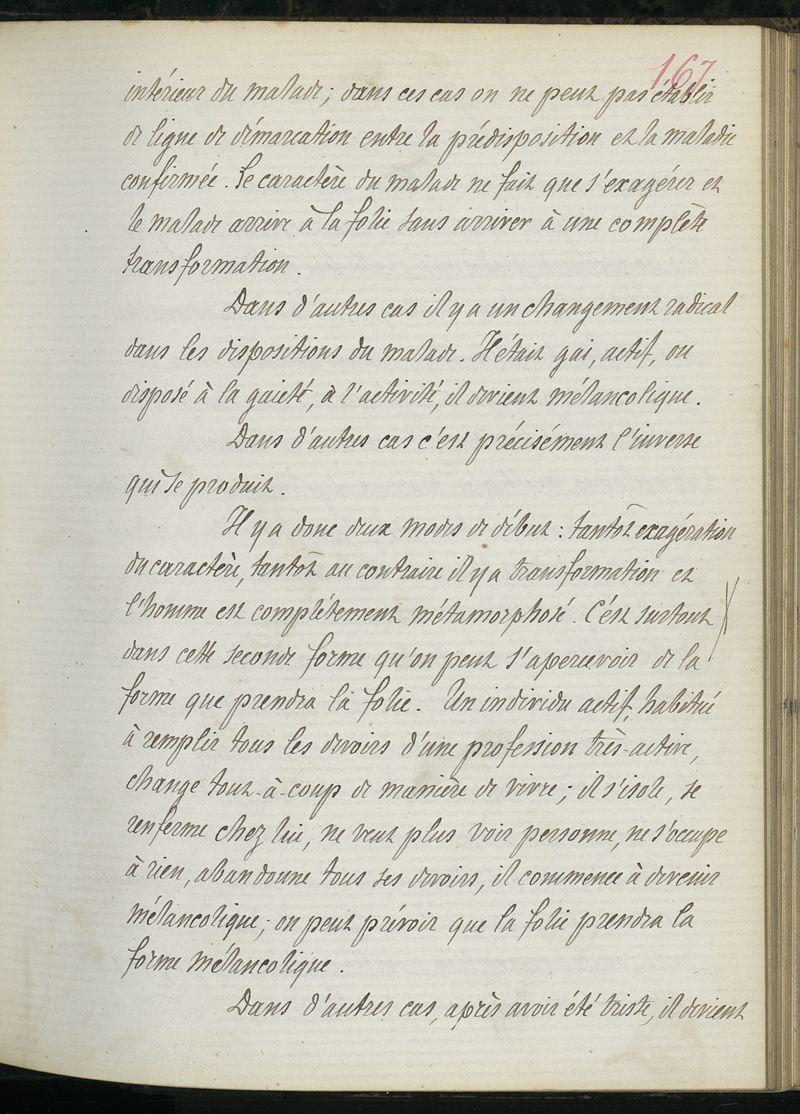 167.
intérieur du malade ; dans ces cas on ne peut pas établir
de ligne de démarcation entre la prédisposition et la maladie
confirmée. Le caractère du malade ne fait que s'exagérer et
le malade arrive à la folie sans arriver à une complète
transformation.
Dans d'autres cas il y a un changement radical
dans les dispositions du malade. Il était gai, actif, ou
disposé à la gaieté, à l'activité, il devient mélancolique.
Dans d'autres cas c'est précisément l'inverse
qui se produit.
Il y a donc deux modes de début : tantôt exagération
du caractère, tantôt au contraire il y a transformation et
l'homme est complétement métamorphosé. C'est surtout
dans cette seconde forme qu'on peut s'apercevoir de la
forme que prendra la folie. Un individu actif, habitué
à remplir tous les devoirs d'une profession très-active,
change tout-à-coup de manière de vivre ; il s'isole, se
renferme chez lui, ne veut plus voir personne, ne s'occupe
à rien, abandonne tous ses devoirs, il commence à devenir
mélancolique ; on peut prévoir que la folie prendra la
forme mélancolique.
Dans d'autres cas, après avoir été triste, il devient